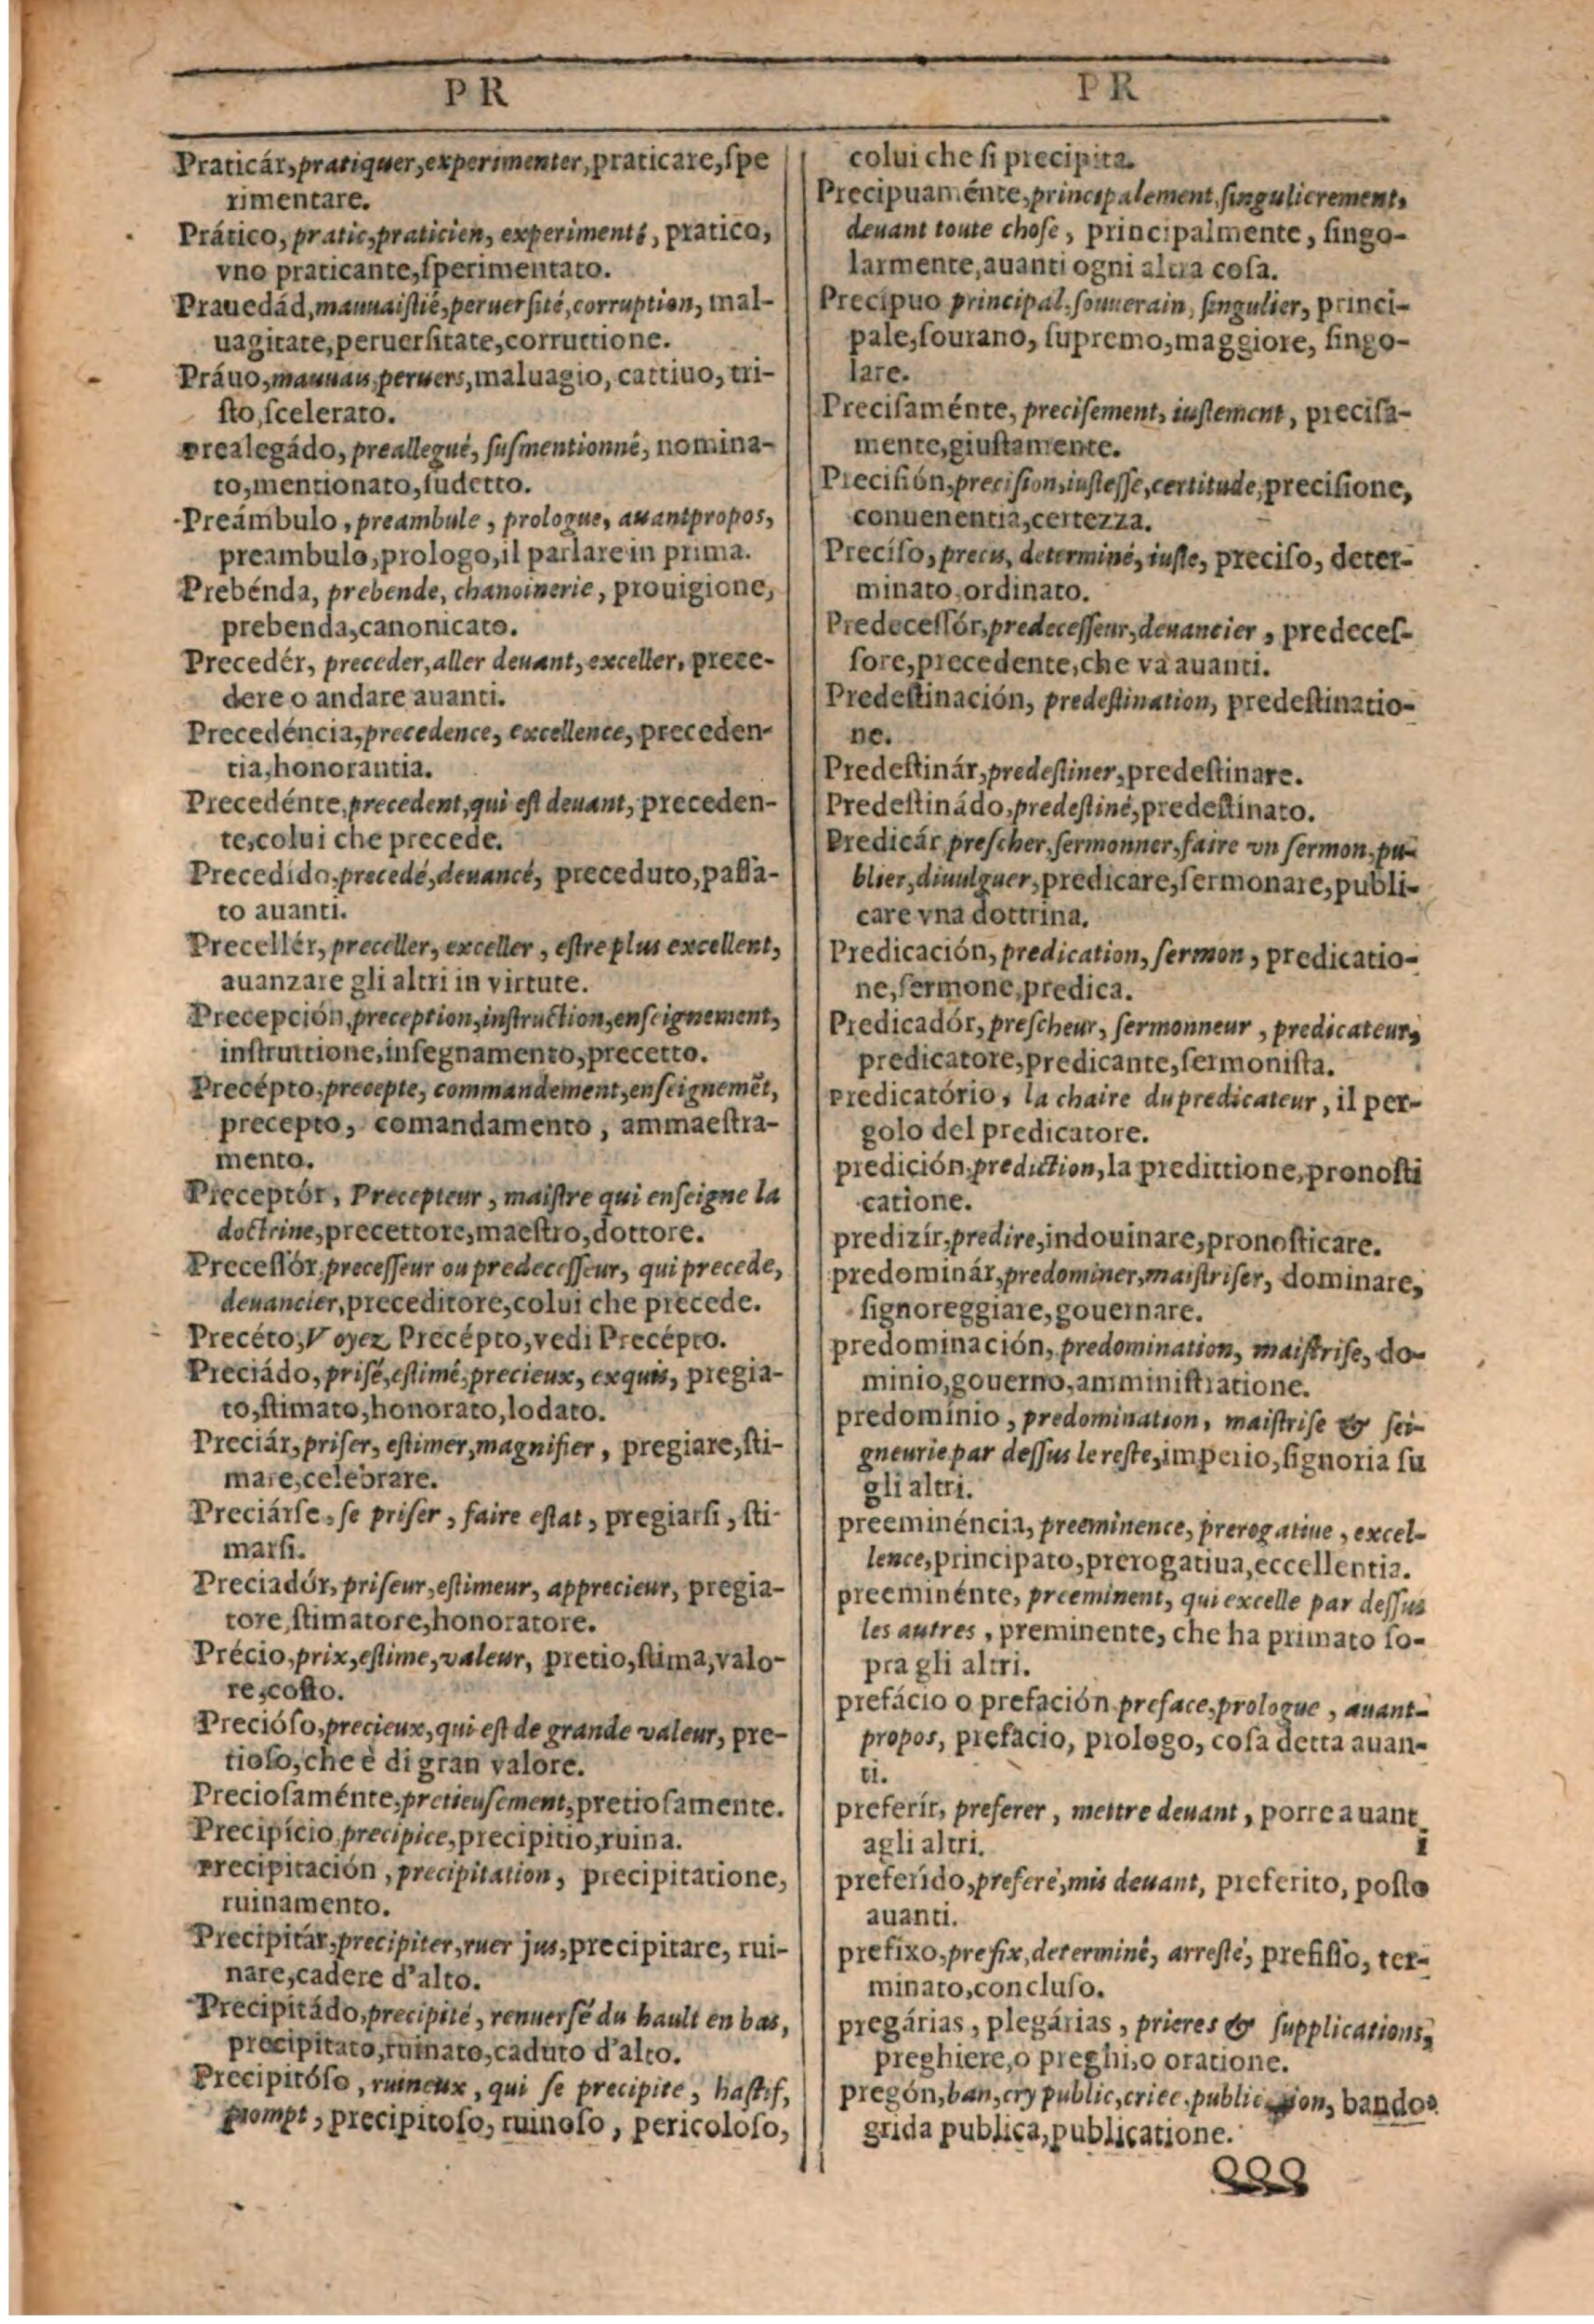 PR
Praticár, pratiquer, experimenter, praticare, ſpe
rimentare.
Prático, pratic, praticien, experimenté, pratico,
vno praticante, ſperimentato.
Prauedád, mauuaiſtié, peruerſité, corruption, mal-
uagitate, peruerſitate, corruttione.
Práuo, mauuais, peruers, maluagio, cattiuo, tri-
ſto, ſcelerato.
prealegádo, preallegué, ſuſmentionné, nomina-
to, mentionato, ſudetto.
Preámbulo, preambule, prologue, auantpropos,
preambulo, prologo, il parlare in prima.
Prebénda, prebende, chanoinerie, prouigione,
prebenda, canonicato.
Precedér, preceder, aller deuant, exceller, prece-
dere o andare auanti.
Precedéncia, precedence, excellence, preceden-
tia, honorantia.
Precedénte, precedent, qui eſt deuant, preceden-
te, colui che precede.
Precedido, precedé, deuancé, preceduto, paſſa-
to auanti.
Precellér, preceller, exceller, eſtre plus excellent,
auanzare gli altri in virtute.
Precepción, preception, inſtruction, enſeignement,
inſtruttione, inſegnamento, precetto.
Precépto, precepte, commandement, enſeignemēt,
precepto, comandamento, ammaeſtra-
mento.
Preceptór, Precepteur, maiſtre qui enſeigne la
doctrine, precettore, maeſtro, dottore.
Preceſſór, preceſſeur ou predeceſſeur, qui precede,
deuancier, preceditore, colui che precede.
Precéto, Voyez Precépto, vedi Precépto.
Preciádo, priſé, eſtimé, precieux, exquis, pregia-
to, ſtimato, honorato, lodato.
Preciár, priſer, eſtimer, magnifier, pregiare, ſti-
mare, celebrare.
Preciárſe, ſe priſer, faire eſtat, pregiarſi, ſti-
marſi.
Preciadór, priſeur, eſtimeur, apprecieur, pregia-
tore, ſtimatore, honoratore.
Précio, prix, eſtime, valeur, pretio, ſtima, valo-
re, coſto.
Precióſo, precieux, qui eſt de grande valeur, pre-
tioſo, che è di gran valore.
Precioſaménte, pretieuſement, pretioſamente.
Precipício, precipice, precipitio, ruina.
precipitación, precipitation, precipitatione,
ruinamento.
Precipitár, precipiter, ruer jus, precipitare, rui-
nare, cadere d'alto.
Precipitádo, precipité, renuerſé du hault en bas,
precipitato, ruinato, caduto d'alto.
Precipitóſo, ruineux, qui ſe precipite, haſtif,
prompt, precipitoſo, ruinoſo, pericoloſo,
PR
colui che ſi precipita.
Precipuaménte, principalement, ſingulierement,
deuant toute choſe, principalmente, ſingo-
larmente, auanti ogni altra coſa.
Precípuo principal, ſouuerain, ſingulier, princi-
pale, ſourano, ſupremo, maggiore, ſingo-
lare.
Preciſaménte, preciſement, iuſtement, preciſa-
mente, giuſtamente.
Preciſión, preciſion, iuſteſſe, certitude, preciſione,
conuenentia, certezza.
Preciſo, precis, determiné, iuſte, preciſo, deter-
minato, ordinato.
Predeceſſór, predeceſſeur, deuancier, predeceſ-
ſore, precedente, che va auanti.
Predeſtinación, predeſtination, predeſtinatio-
ne.
Predeſtinár, predeſtiner, predeſtinare.
Predeſtinádo, predeſtiné, predeſtinato.
Predicár, preſcher, ſermonner, faire vn ſermon, pu-
blier, diuulguer, predicare, ſermonare, publi-
care vna dottrina.
Predicación, predication, ſermon, predicatio-
ne, ſermone, predica.
Predicadór, preſcheur, ſermonneur, predicateur,
predicatore, predicante, ſermoniſta.
predicatório, la chaire du predicateur, il per-
golo del predicatore.
predición, prediction, la predittione, pronoſti
catione.
predizír, predire, indouinare, pronoſticare.
predominár, predominer, maiſtriſer, dominare,
ſignoreggiare, gouernare.
predominación, predomination, maiſtriſe, do-
minio, gouerno, amminiſtratione.
predomínio, predomination, maiſtriſe & ſei-
gneurie par deſſus le reſte, imperio, ſignoria ſu
gli altri.
preeminéncia, preeminence, prerogatiue, excel-
lence, principato, prerogatiua, eccellentia.
preeminénte, preeminent, qui excelle par deſſus
les autres, preminente, che ha primato ſo-
pra gli altri.
prefácio o prefación preface, prologue, auant-
propos, prefacio, prologo, coſa detta auan-
ti.
preferír, preferer, mettre deuant, porre auant
agli altri. i
preferído, preferé, mis deuant, preferito, poſto
auanti.
prefixo, prefix, determiné, arreſté, prefiſſo, ter-
minato, concluſo.
pregárias, plegárias, prieres & ſupplications,
preghiere, o preghi, o oratione.
pregón, ban, cry public, criee, publication, bando,
grida publica, publicatione.
QQQ